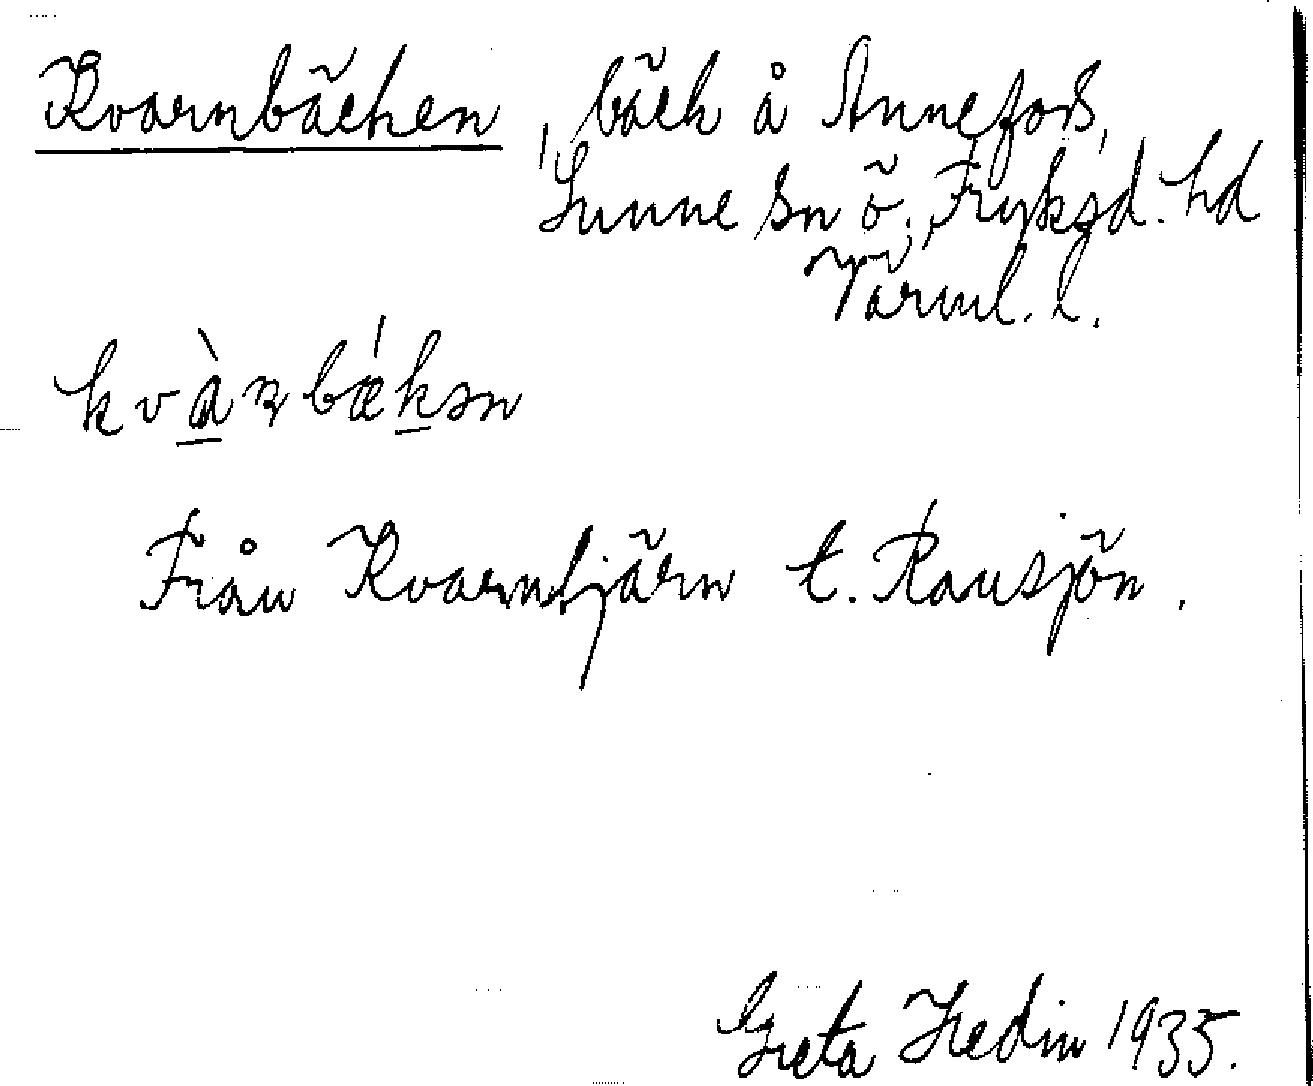 Kvarnbäcken, bäck å Annefors,
Sunne sn ö. Fryksd. hd
Värml. l.
Från Kvarntjärn t.Ransjön.
Greta Hedin 1935.